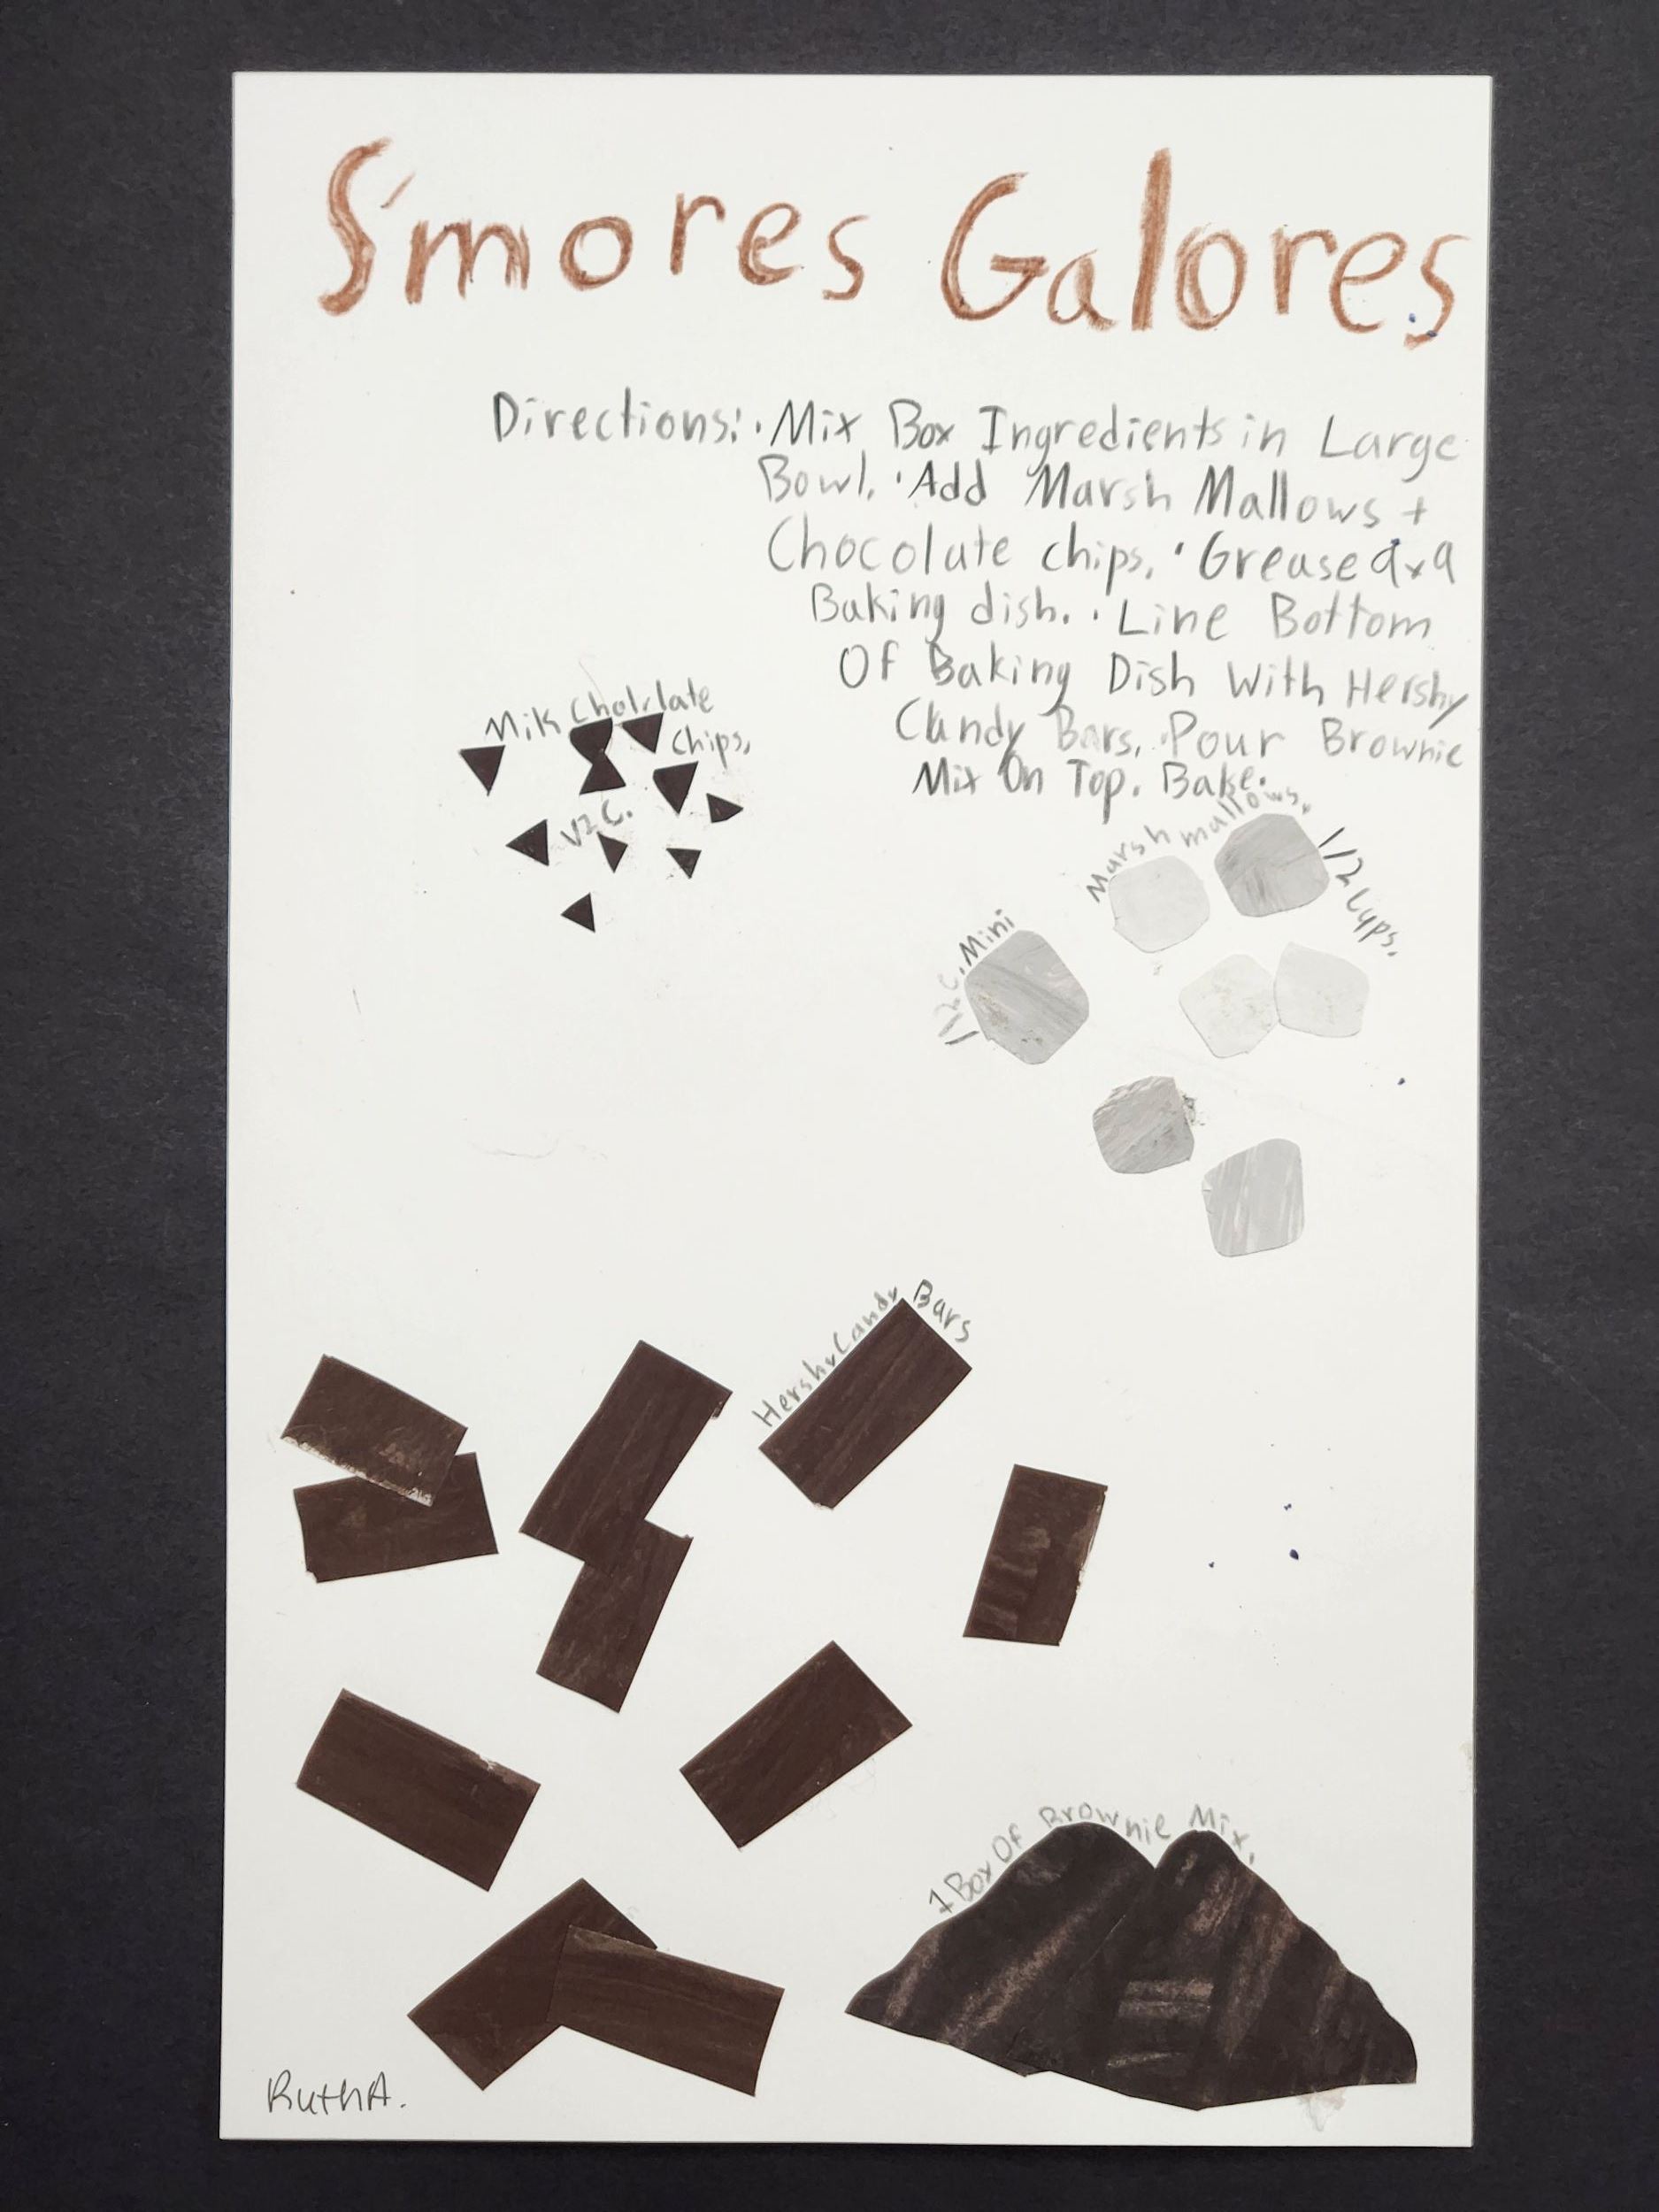 S'mores Galores
Directions: · Mix Box Ingredients in Large
Bowl. · Add Marsh Mallows +
Chocolate chips. · Grease 9x9
Baking dish. · Line Bottom
Of Baking Dish With Hershy
Candy Bars. · Pour Brownie
Mix On Top. Bake.
Milk Choclate
Chips.
1/2 C.
1/2 C. Mini
Marsh mallows.
1/2 Cups.
Hershy Candy Bars
1 Box Of Brownie Mix.
Ruth A.